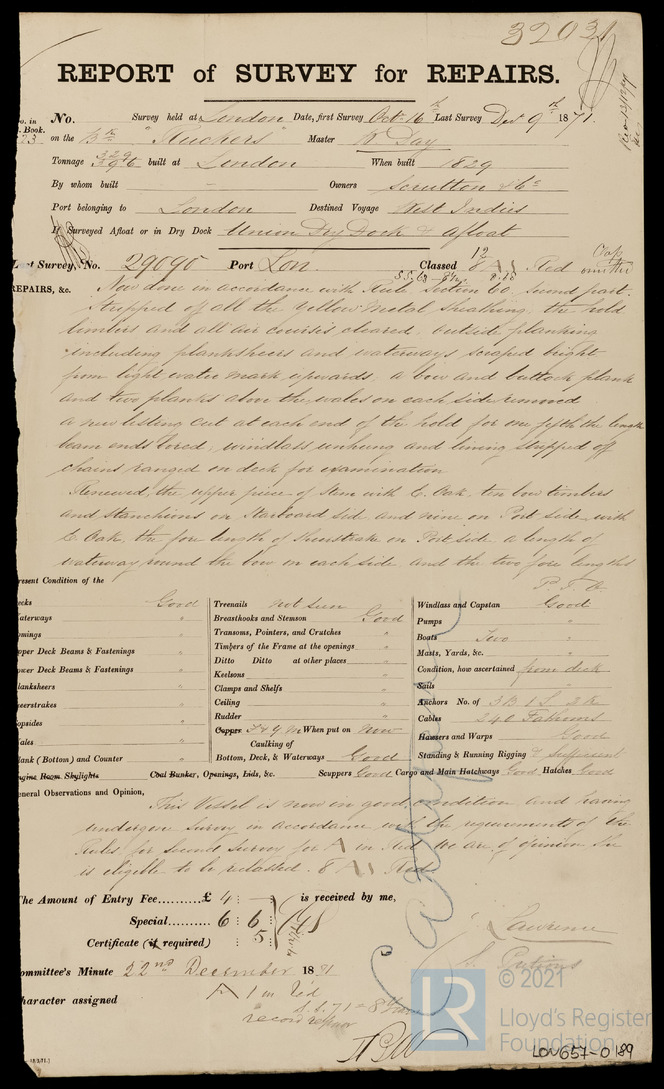 32031
REPORT of SURVEY for REPAIRS.
No. Survey held at London Date, first Survey Oct. 16th Last Survey Dec 9th 1871.
on the Bk "Tuckers" Master W Day
Tonnage built at London When built 1829
By whom built Owners Scrutton & Co
Port belonging to London Destined Voyage West Indies
If Surveyed Afloat or in Dry Dock Union Dry Dock & Afloat
Last Survey, No. 29090 Port Lon. Classed Red
REPAIRS, &c. Now done in accordance with Rule Section 60, second part.
Stripped of all the Yellow Metal Sheathing, the hold
timbers and all air courses cleared, outside planking
including plank sheers and waterways scraped bright
from light water mark upwards, a bow and buttock plank
and two planks above the wales on each side removed
a new listing cut at each end of the hold for one fifth the length
beam ends bored, windlass unhung and lining stripped off
chains ranged on deck for examination
Renewed, the upper piece of Stem with E. Oak, ten bow timbers
and Stanchions on Starboard side and nine on Port side with
E Oak, the fore length of Sheerstrake on Port side a length of
waterway round the bow on each side and the two fore lengths
P. T. O.
resent Condition of the
ecks Good
aterways "
omings "
pper Deck Beams & Fastenings "
ower Deck Beams & Fastenings "
lanksheers "
eerstrakes "
opsides "
ales "
lank (Bottom) and Counter "
ngine Room Skylights
Treenails not seen
Breasthooks and Stemson Good
Transoms, Pointers, and Crutches "
Timbers of the Frame at the openings "
Ditto Ditto at other places "
Keelsons "
Clamps and Shelfs "
Ceiling "
Rudder "
Copper F & Y M When put on Now
Caulking of
Bottom, Deck, & Waterways Good
Coal Bunker, Openings, Lids, &c.
Windlass and Capstan Good
Pumps "
Boats Two "
Masts, Yards, &c. "
Condition, how ascertained from deck
Sails "
Anchors No. of 3 B 1 S 2 K
Cables 240 Fathoms
Hawsers and Warps Good
Standing & Running Rigging & sufficient
Scuppers Good Cargo and Main Hatchways Good Hatches Good
eneral Observations and Opinion,
This Vessel is now in good condition and having
undergone survey in accordance with the requirements of the
Rules for Second Survey for A in Red we are of opinion She
is eligible to be reclassed. 8 A 1 Red
The Amount of Entry Fee.........£ 4 : — : is received by me,
Special......... 6 : 6 :
Certificate (if required) : 5 :
Lawrence
ommittee's Minute 22nd December 1871
haracter assigned A 1 in Red
S. S. 71 = 8 Years
record repair
© 2021
LR
Lloyd's Register
Foundation
LON657-0189